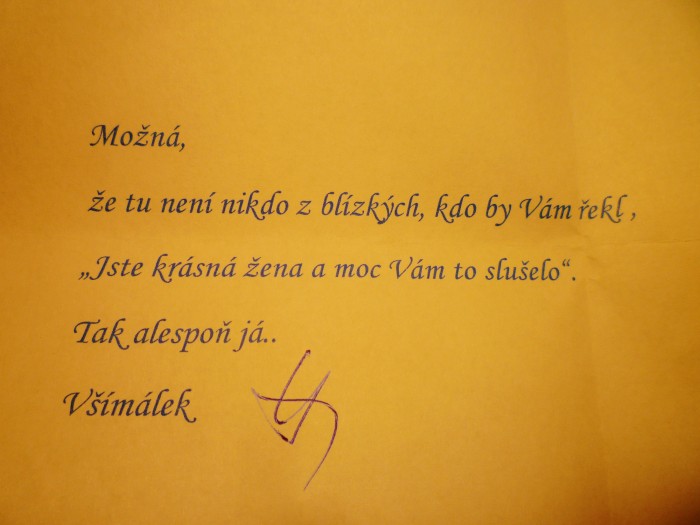 Možná,
že tu není nikdo z blízkých, kdo by Vám řekl ,
„Jste krásná žena a moc Vám to slušelo“.
Tak alespoň já..
Všímálek